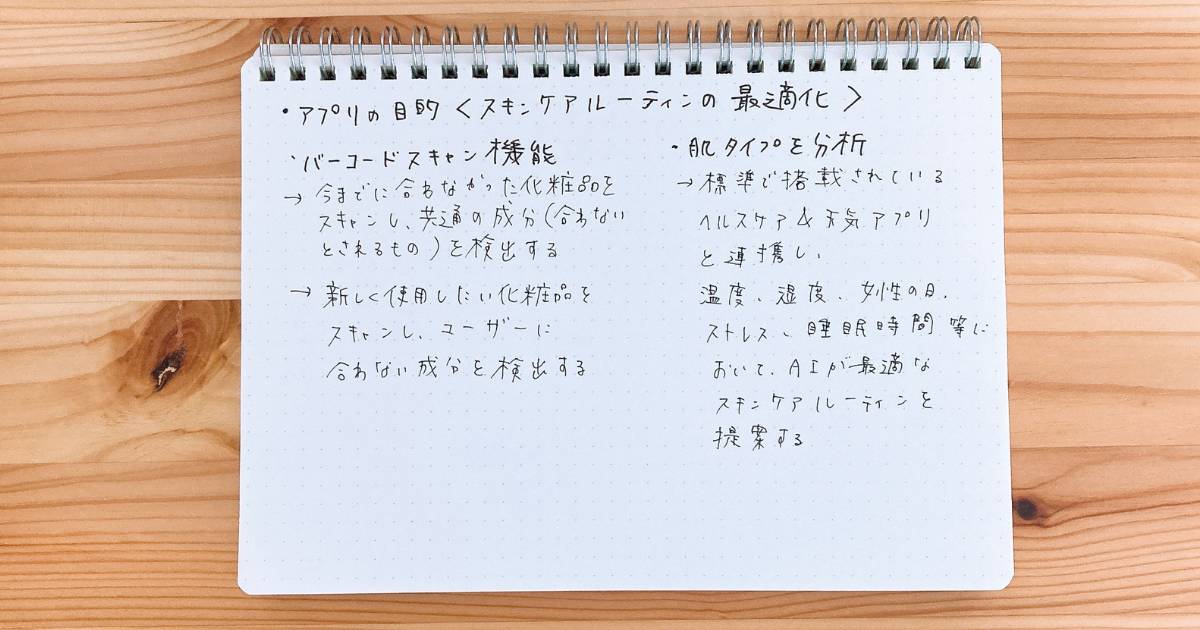 ・アプリの目的〈スキンケアルーティンの最適化〉
・バーコードスキャン機能
→今までに合わなかった化粧品を
スキャンし、共通の成分(合わない
とされるもの)を検出する
→新しく使用したい化粧品を
スキャンし、ユーザーに
合わない成分を検出する
・肌タイプを分析
→標準で搭載されている
ヘルスケア&天気アプリ
と連携し、
温度、湿度、女性の日、
ストレス、睡眠時間等に
おいて、AIが最適な
スキンケアルーティンを
提案する